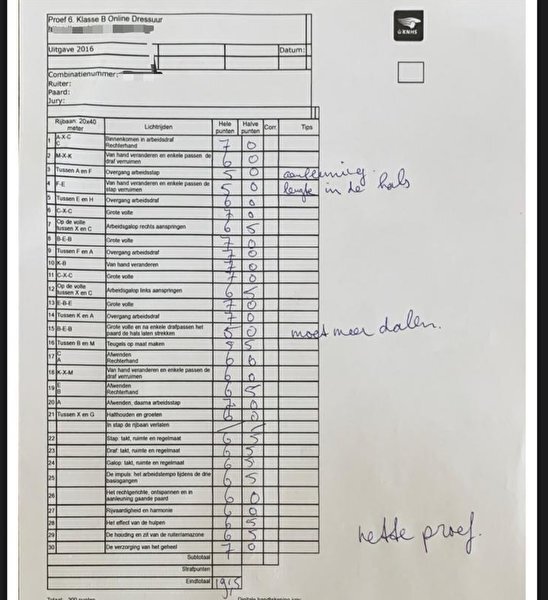 Proef 6. Klasse B Online Dressuur
KNHS
Uitgave 2016
Datum:
Combinatienummer:
Ruiter:
Paard:
Jury:
Rijbaan: 20x40 meter Lichtrijden Hele punten Halve punten Corr Tips
1 A-X-C C Binnenkomen in arbeidsdraf Rechterhand 7 0
2 M-X-K Van hand veranderen en enkele passen de draf verruimen 6 0
3 Tussen A en F Overgang arbeidsstap 5 0 aanleuning
4 F-E Van hand veranderen en enkele passen de stap verruimen 5 0 lengte in de hals
5 Tussen E en H Overgang arbeidsdraf 6 0
6 C-X-C Grote volte 7 0
7 Op de volte tussen X en C Arbeidsgalop rechts aanspringen 6 5
8 B-E-B Grote volte 7 0
9 Tussen F en A Overgang arbeidsdraf 7 0
10 K-B Van hand veranderen 7 0
11 C-X-C Grote volte 7 0
12 Op de volte tussen X en C Arbeidsgalop links aanspringen 6 5
13 E-B-E Grote volte 7 0
14 Tussen K en A Overgang arbeidsdraf 7 0
15 B-E-B Grote volte en na enkele drafpassen het paard de hals laten strekken 5 0 moet meer dalen.
16 Tussen B en M Teugels op maat maken 5 5
17 C A Afwenden Rechterhand 6 0
18 K-X-M Van hand veranderen en enkele passen de draf verruimen 6 0
19 E B Afwenden Rechterhand 6 5
20 A Afwenden, daarna arbeidsstap 7 0
21 Tussen X en G Halthouden en groeten 6 0
In stap de rijbaan verlaten
22 Stap: takt, ruimte en regelmaat 6 5
23 Draf: takt, ruimte en regelmaat 6 5
24 Galop: takt, ruimte en regelmaat 6 5
25 De impuls: het arbeidstempo tijdens de drie basisgangen 6 5
26 Het rechtgerichte, ontspannen en in aanleuning gaande paard 6 0
27 Rijvaardigheid en harmonie 6 0
28 Het effect van de hulpen 6 5
29 De houding en zit van de ruiter/amazone 6 5
30 De verzorging van het geheel 7 0
nette proef.
Subtotaal
Strafpunten
Eindtotaal